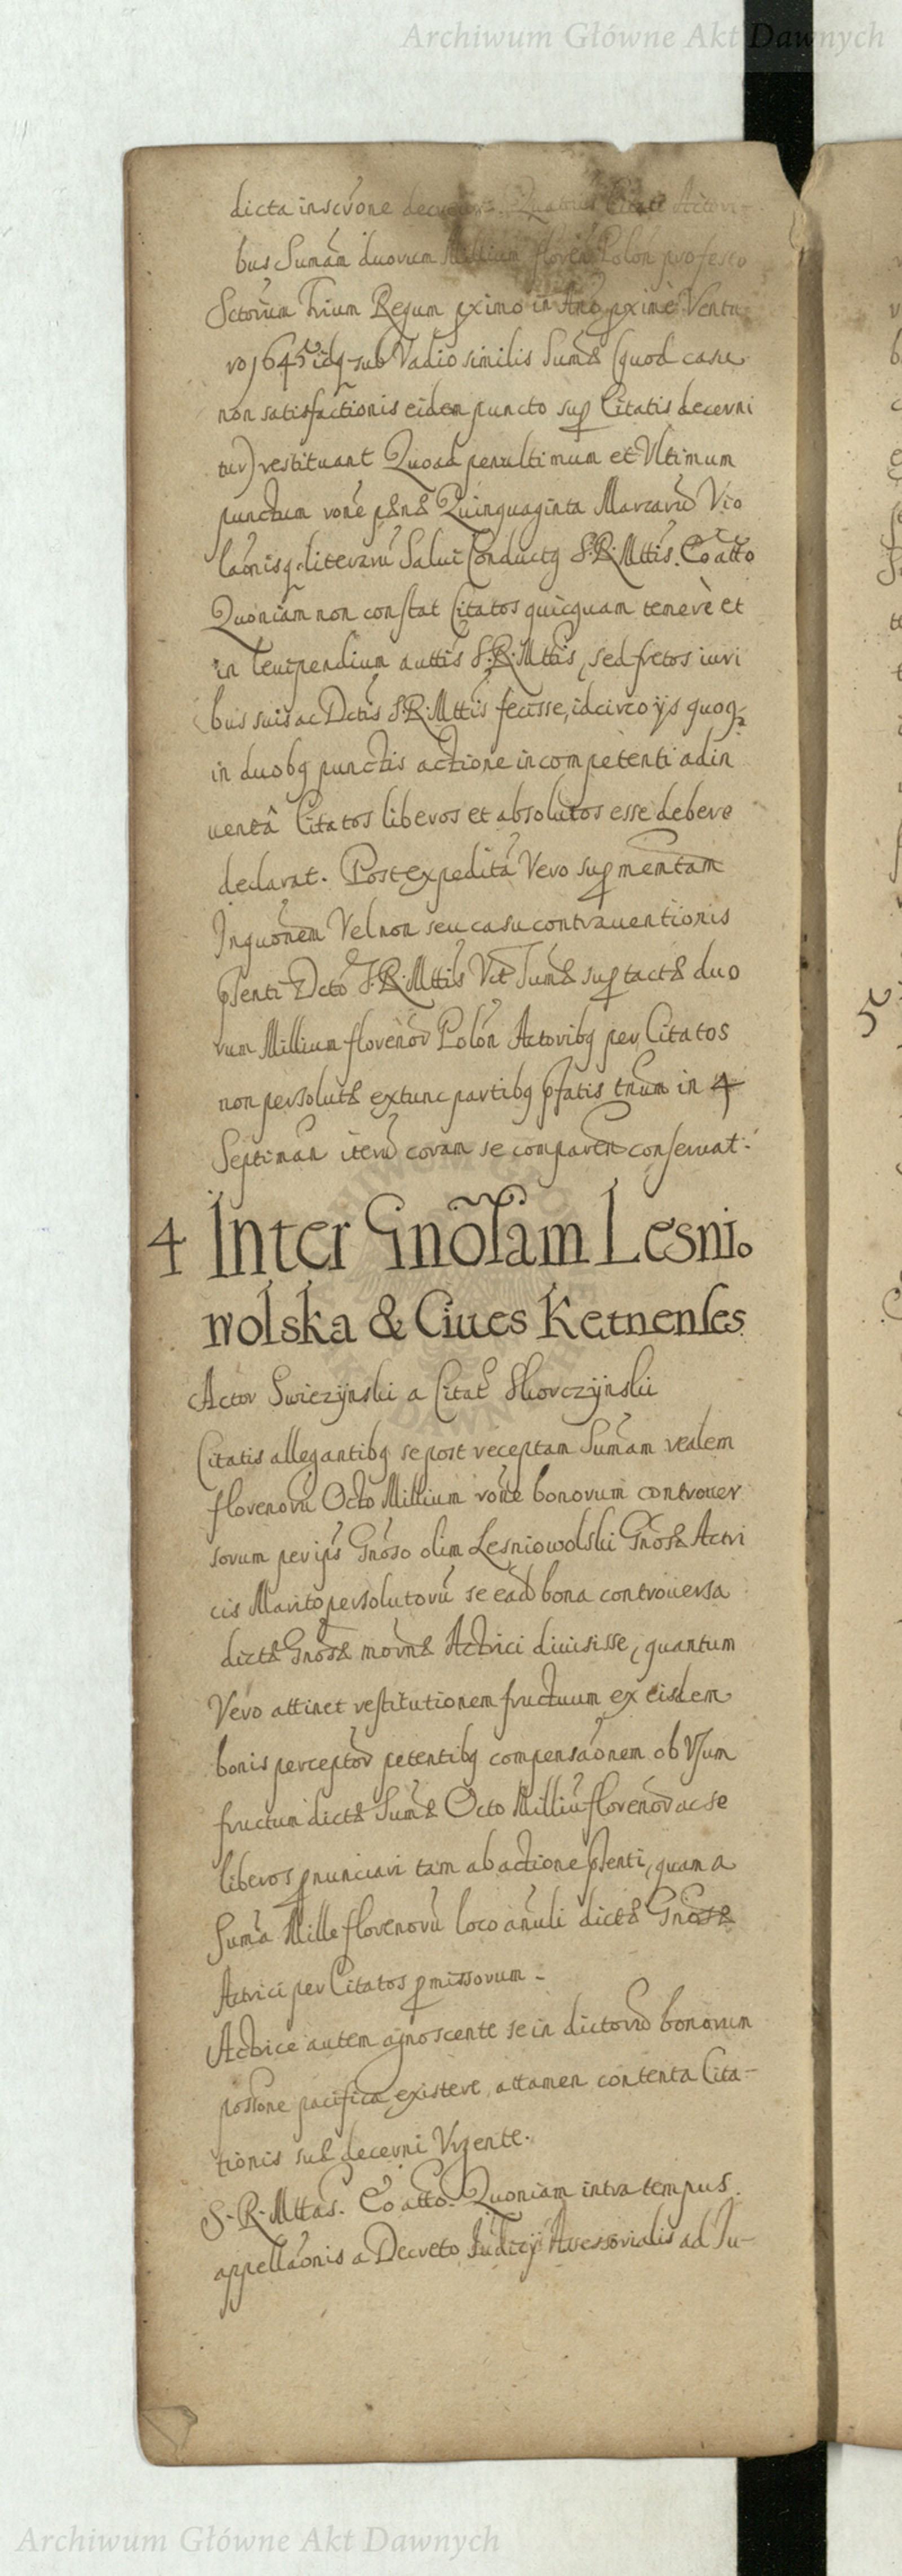 Archiwum Główne Akt Dawnych
dicta inscrõne Quatenus Citati Actori-
bus Sumãm duorum Millium floren Polon pro festo
Sctorum Trium Regum pximo in Ano pximè Ventu-
ro 1645 idq sub Vadio similis Sumæ (quod casu
non satisfactionis eidem puncto sup Citatis decerni
tur) restituant Quoad penultimum et Vltimum
punctum rone pænæ Quinquaginta Marcarũ Vio
laõnisq literarũ Salui Conductq S.R.Mttis. Eo atto
Quoniam non constat Citatos quicquam temerè et
in leuipendium auttis S.R.Mttis, sed fretos iuri
bus suis ac Dctis S.R.Mttis fecisse, idcirco ijs quoq
in duobq punctis actione incompetenti adin
uentâ Citatos liberos et absolutos esse debere
declarat. Post expeditã Vero sup mentam
Inquõnem Vel non seu casu contrauentionis
pñti Dcto S.R.Mttis Vt Sumæ sup tactæ duo
rum Millium florenor Polon Actoribq per Citatos
non persolutæ extunc partibq pfatis tñum in 4
Septiman iterũ coram se comparen conseruat.
4 Inter Gnõsam Lesnio
wolska & Ciues Ketnenses
Actor Swiezijnski a Citat Skorczijnskii
Citatis allegantibq se post receptam Sumãm realem
florenorũ Octo Millium rone bonorum controuer
sorum per ips Gnoso olim Lesniowolski Gnosæ Actri
cis Marito persolutorũ se eadẽ bona controuersa
dictæ Gnosæ modernæ Actrici diuisisse, quantum
Vero attinet restitutionem fructuum ex eisdem
bonis perceptor petentibq compensaõnem ob Vsum
fructum dictæ Sumæ Octo Milliũ florenor ac se
liberos pnunciari tam ab actione pñti, quam a
Sumã Mille florenorũ loco anuli dictæ Gnosæ
Actrici per Citatos pmissorum -
Actrice autem agnoscente se in dictorũ bonorum
possone pacifica existere, attamen contenta Cita-
tionis sub decerni Vrgente.
S.R.Mttas. Eo atto. Quoniam intra tempus
appellaõnis a Decreto Iudicij Assessorialis ad Iu-
5
Archiwum Główne Akt Dawnych